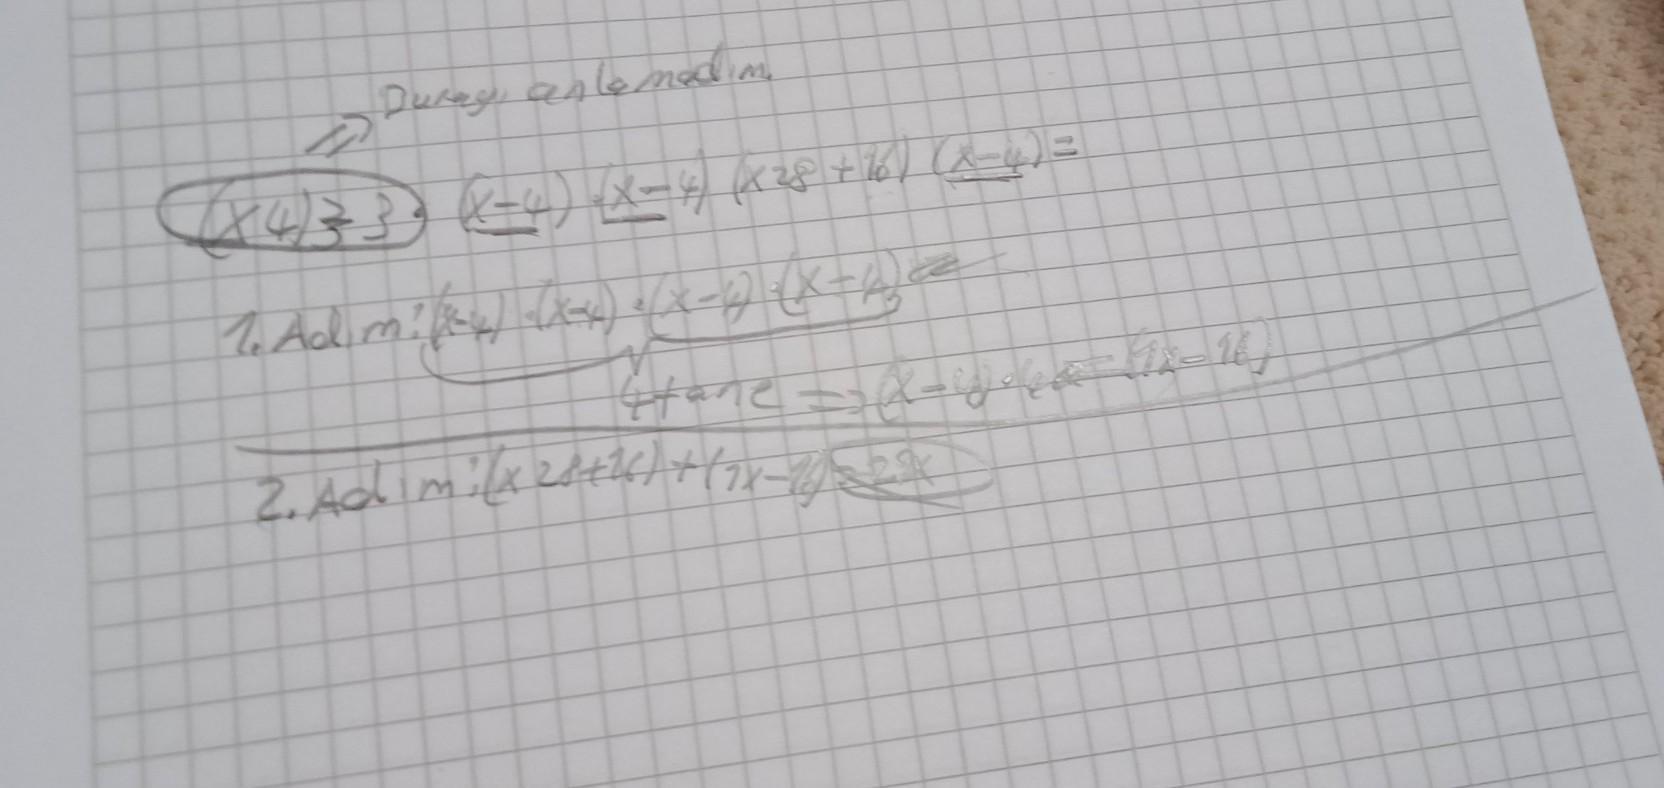 Burayı anlamadım
(x4)3-3. (x-4) (x-4) (x28+16) (x-4)=
1. Adım: (x-4) . (x-4) . (x-4) . (x-4)
4 tane => (x-4) . 4 = (4x-16)
2. Adım: (x28+16) + (4x-16)